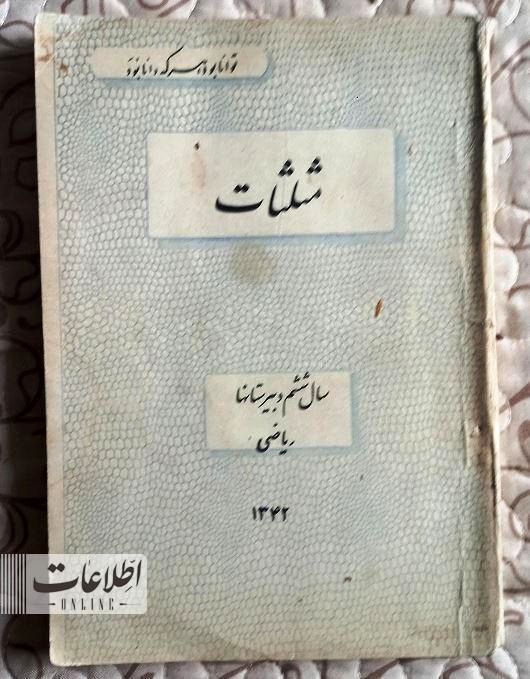 توانا بود هر که دانا بود
مثلثات
سال ششم دبیرستانها
ریاضی
۱۳۴۲
اطلاعات
ONLINE